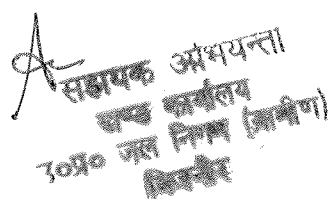 सहायक अभियन्ता
खण्ड कार्यालय
उ०प्र० जल निगम (ग्रामीण)